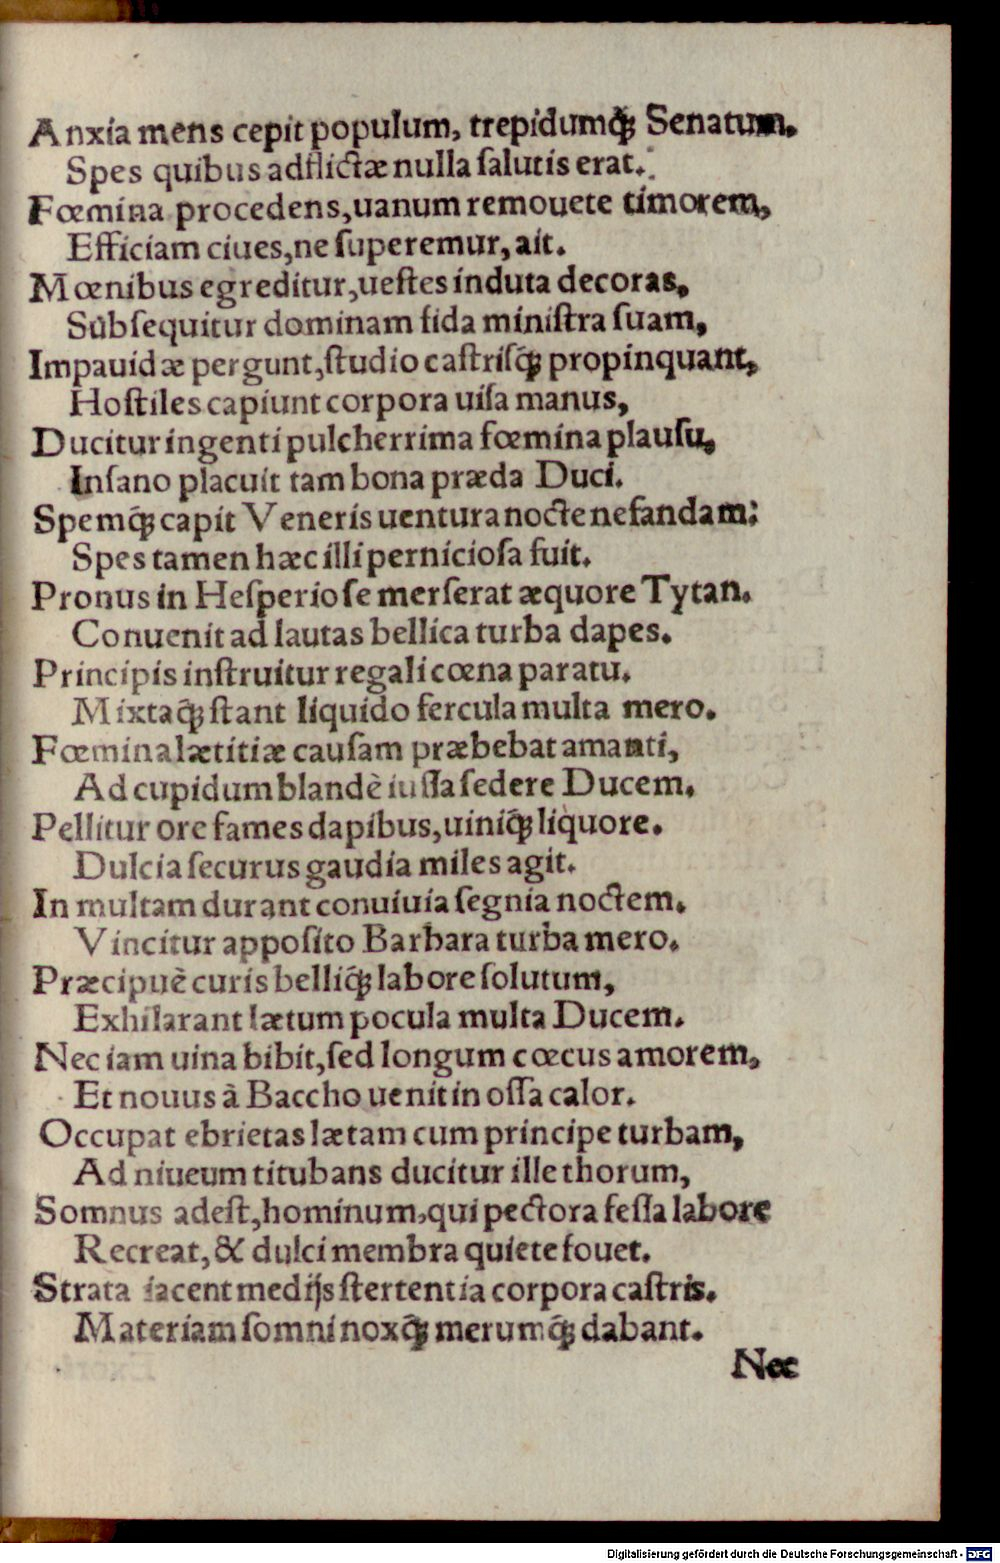 Anxia mens cepit populum, trepidumq́ꝫ Senatum.
Spes quibus adflictæ nulla ſalutis erat.
Fœmina procedens, uanum remouete timorem,
Efficiam ciues, ne ſuperemur, ait.
Mœnibus egreditur, ueſtes induta decoras,
Subſequitur dominam fida miniſtra ſuam,
Impauidæ pergunt, ſtudio caſtriſq́ꝫ propinquant,
Hoſtiles capiunt corpora uiſa manus,
Ducitur ingenti pulcherrima fœmina plauſu,
Inſano placuit tam bona præda Duci.
Spemq́ꝫ capit Veneris uentura nocte nefandam:
Spes tamen hæc illi pernicioſa fuit.
Pronus in Heſperio ſe merſerat æquore Tytan.
Conuenit ad lautas bellica turba dapes.
Principis inſtruitur regali cœna paratu.
Mixtaq́ꝫ ſtant liquido fercula multa mero.
Fœmina lætitiæ cauſam præbebat amanti,
Ad cupidum blandè iuſſa ſedere Ducem.
Pellitur ore fames dapibus, uiniq́ꝫ liquore.
Dulcia ſecurus gaudia miles agit.
In multam durant conuiuia ſegnia noctem.
Vincitur appoſito Barbara turba mero.
Præcipuè curis belliq́ꝫ labore ſolutum,
Exhilarant lætum pocula multa Ducem.
Nec iam uina bibit, ſed longum cœcus amorem,
Et nouus à Baccho uenit in oſſa calor.
Occupat ebrietas lætam cum principe turbam,
Ad niueum titubans ducitur ille thorum,
Somnus adeſt, hominum, qui pectora feſſa labore
Recreat, & dulci membra quiete fouet.
Strata iacent medijs ſtertentia corpora caſtris.
Materiam ſomni noxq́ꝫ merumq́ꝫ dabant.
Nec
Digitalisierung gefördert durch die Deutsche Forschungsgemeinschaft - DFG